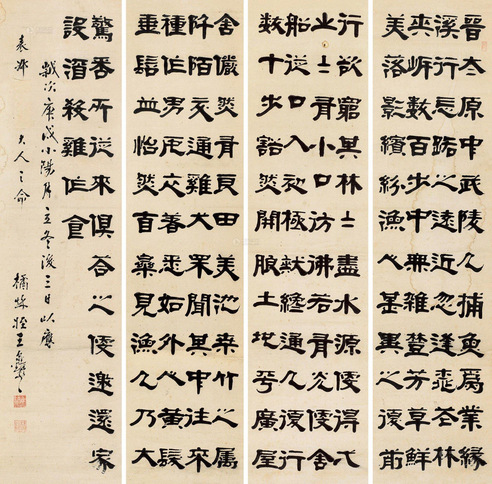 晉太原中武陵人捕魚為業緣
溪行忘路之遠近忽逢桃花林
夾岸數百步中無雜樹芳草鮮
美落影繽紛漁人甚異之復前
行欲窮其林〻盡水源便得一
山〻有小口彷彿若有光便舍
船從口入初極狹纔通人復行
數十步豁然開朗土地平曠屋
舍儼然有良田美池桑竹之屬
阡陌交通雞犬相聞其中往來
種作男女衣著悉如外人黃髮
垂髫並怡然自樂見漁人乃大
驚問所從來俱答之便邀還家
設酒殺雞作食
歲次庚戌小陽月立冬後三日以應
大人之命